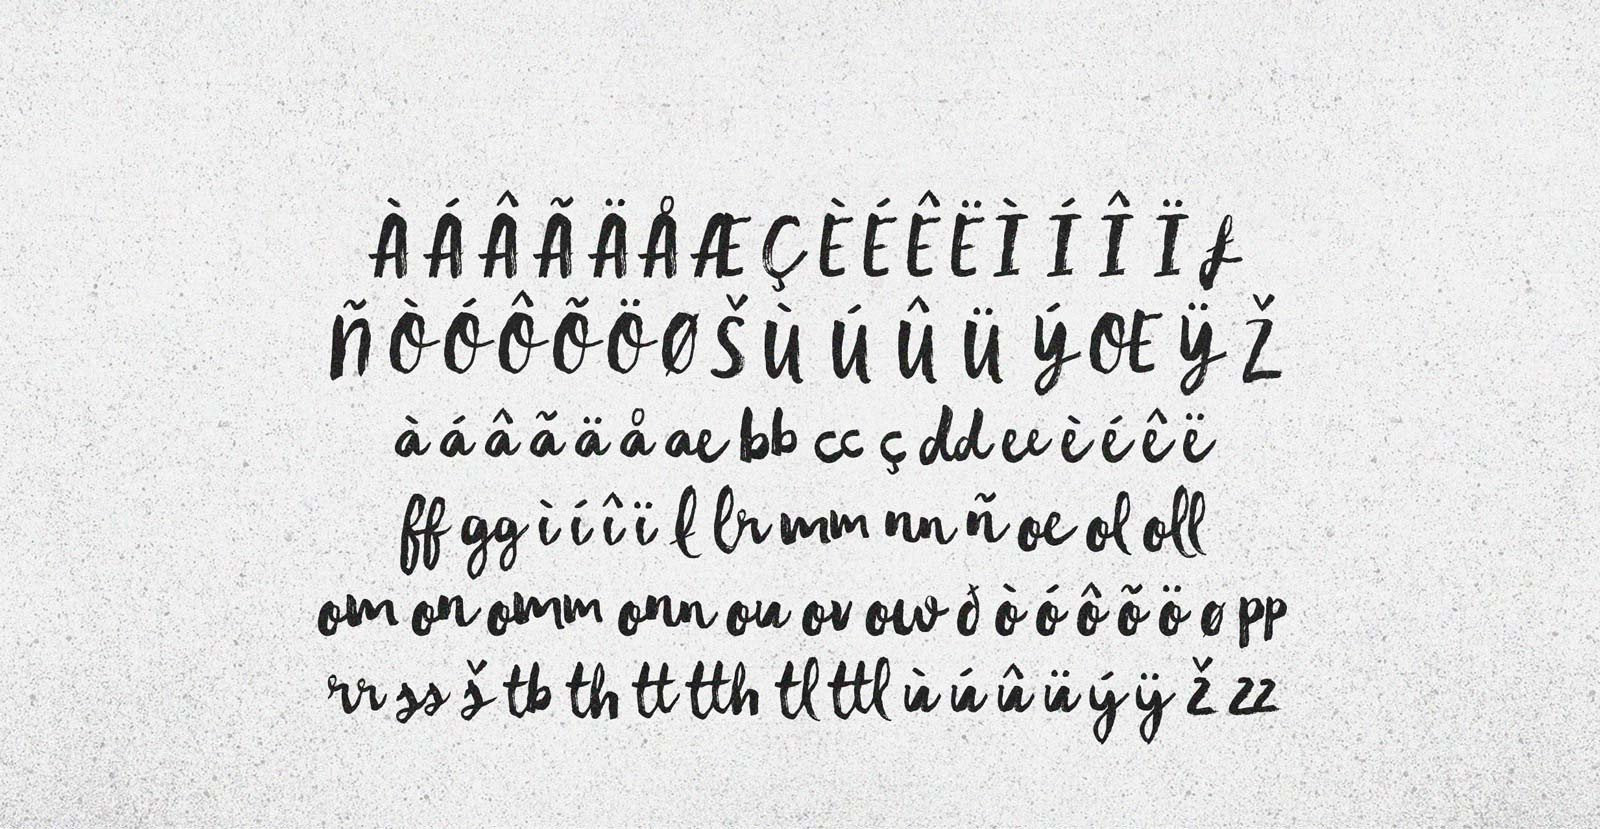 À Á Â Ã Ä Å Æ Ç È É Ê Ë Ì Í Î Ï Ł
Ñ Ò Ó Ô Õ Ö Ø Š Ù Ú Û Ü Ý Œ Ÿ Ž
à á â ã ä å ae bb cc ç dd ee è é ê ë
ff gg ì í î ï ł lr mm nn ñ oe ol oll
om on omm onn ou ov ow ð ò ó ô õ ö ø pp
rr ss š tb th tt tth tl ttl ù ú û ü ý ÿ ž zz